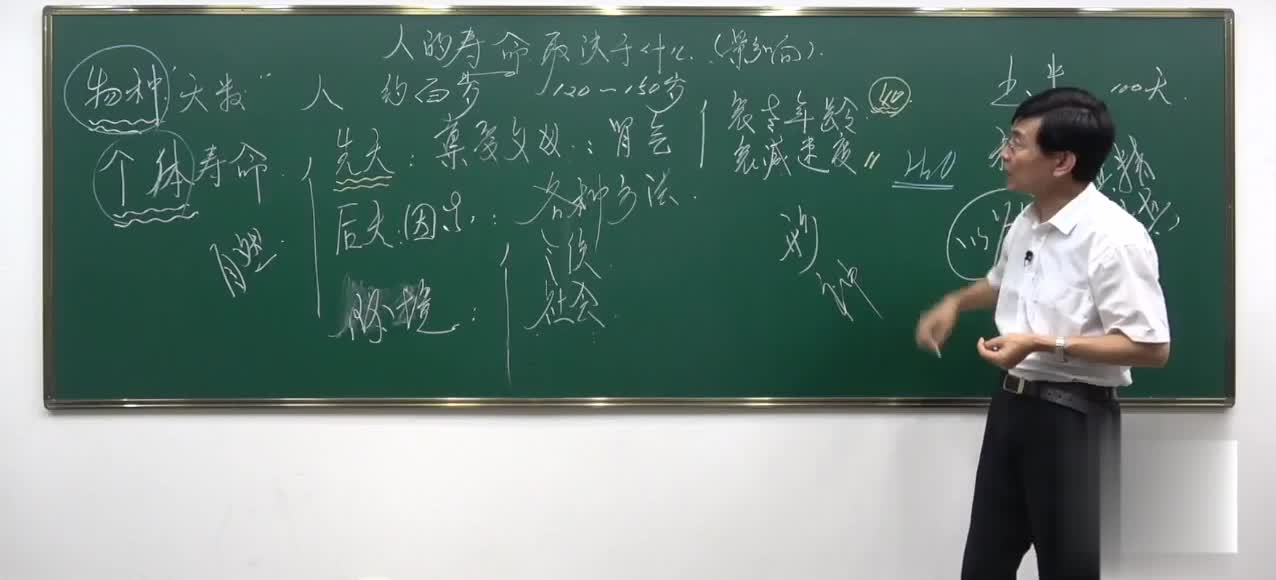 人的寿命取决于什么(影响)
物种"天数" 人 约百岁 120~150岁
个体寿命
先天:禀受父母:肾气
衰老年龄 40
衰减速度
H₂O
后天因素:各种方法
环境:
社会
形
神
100天